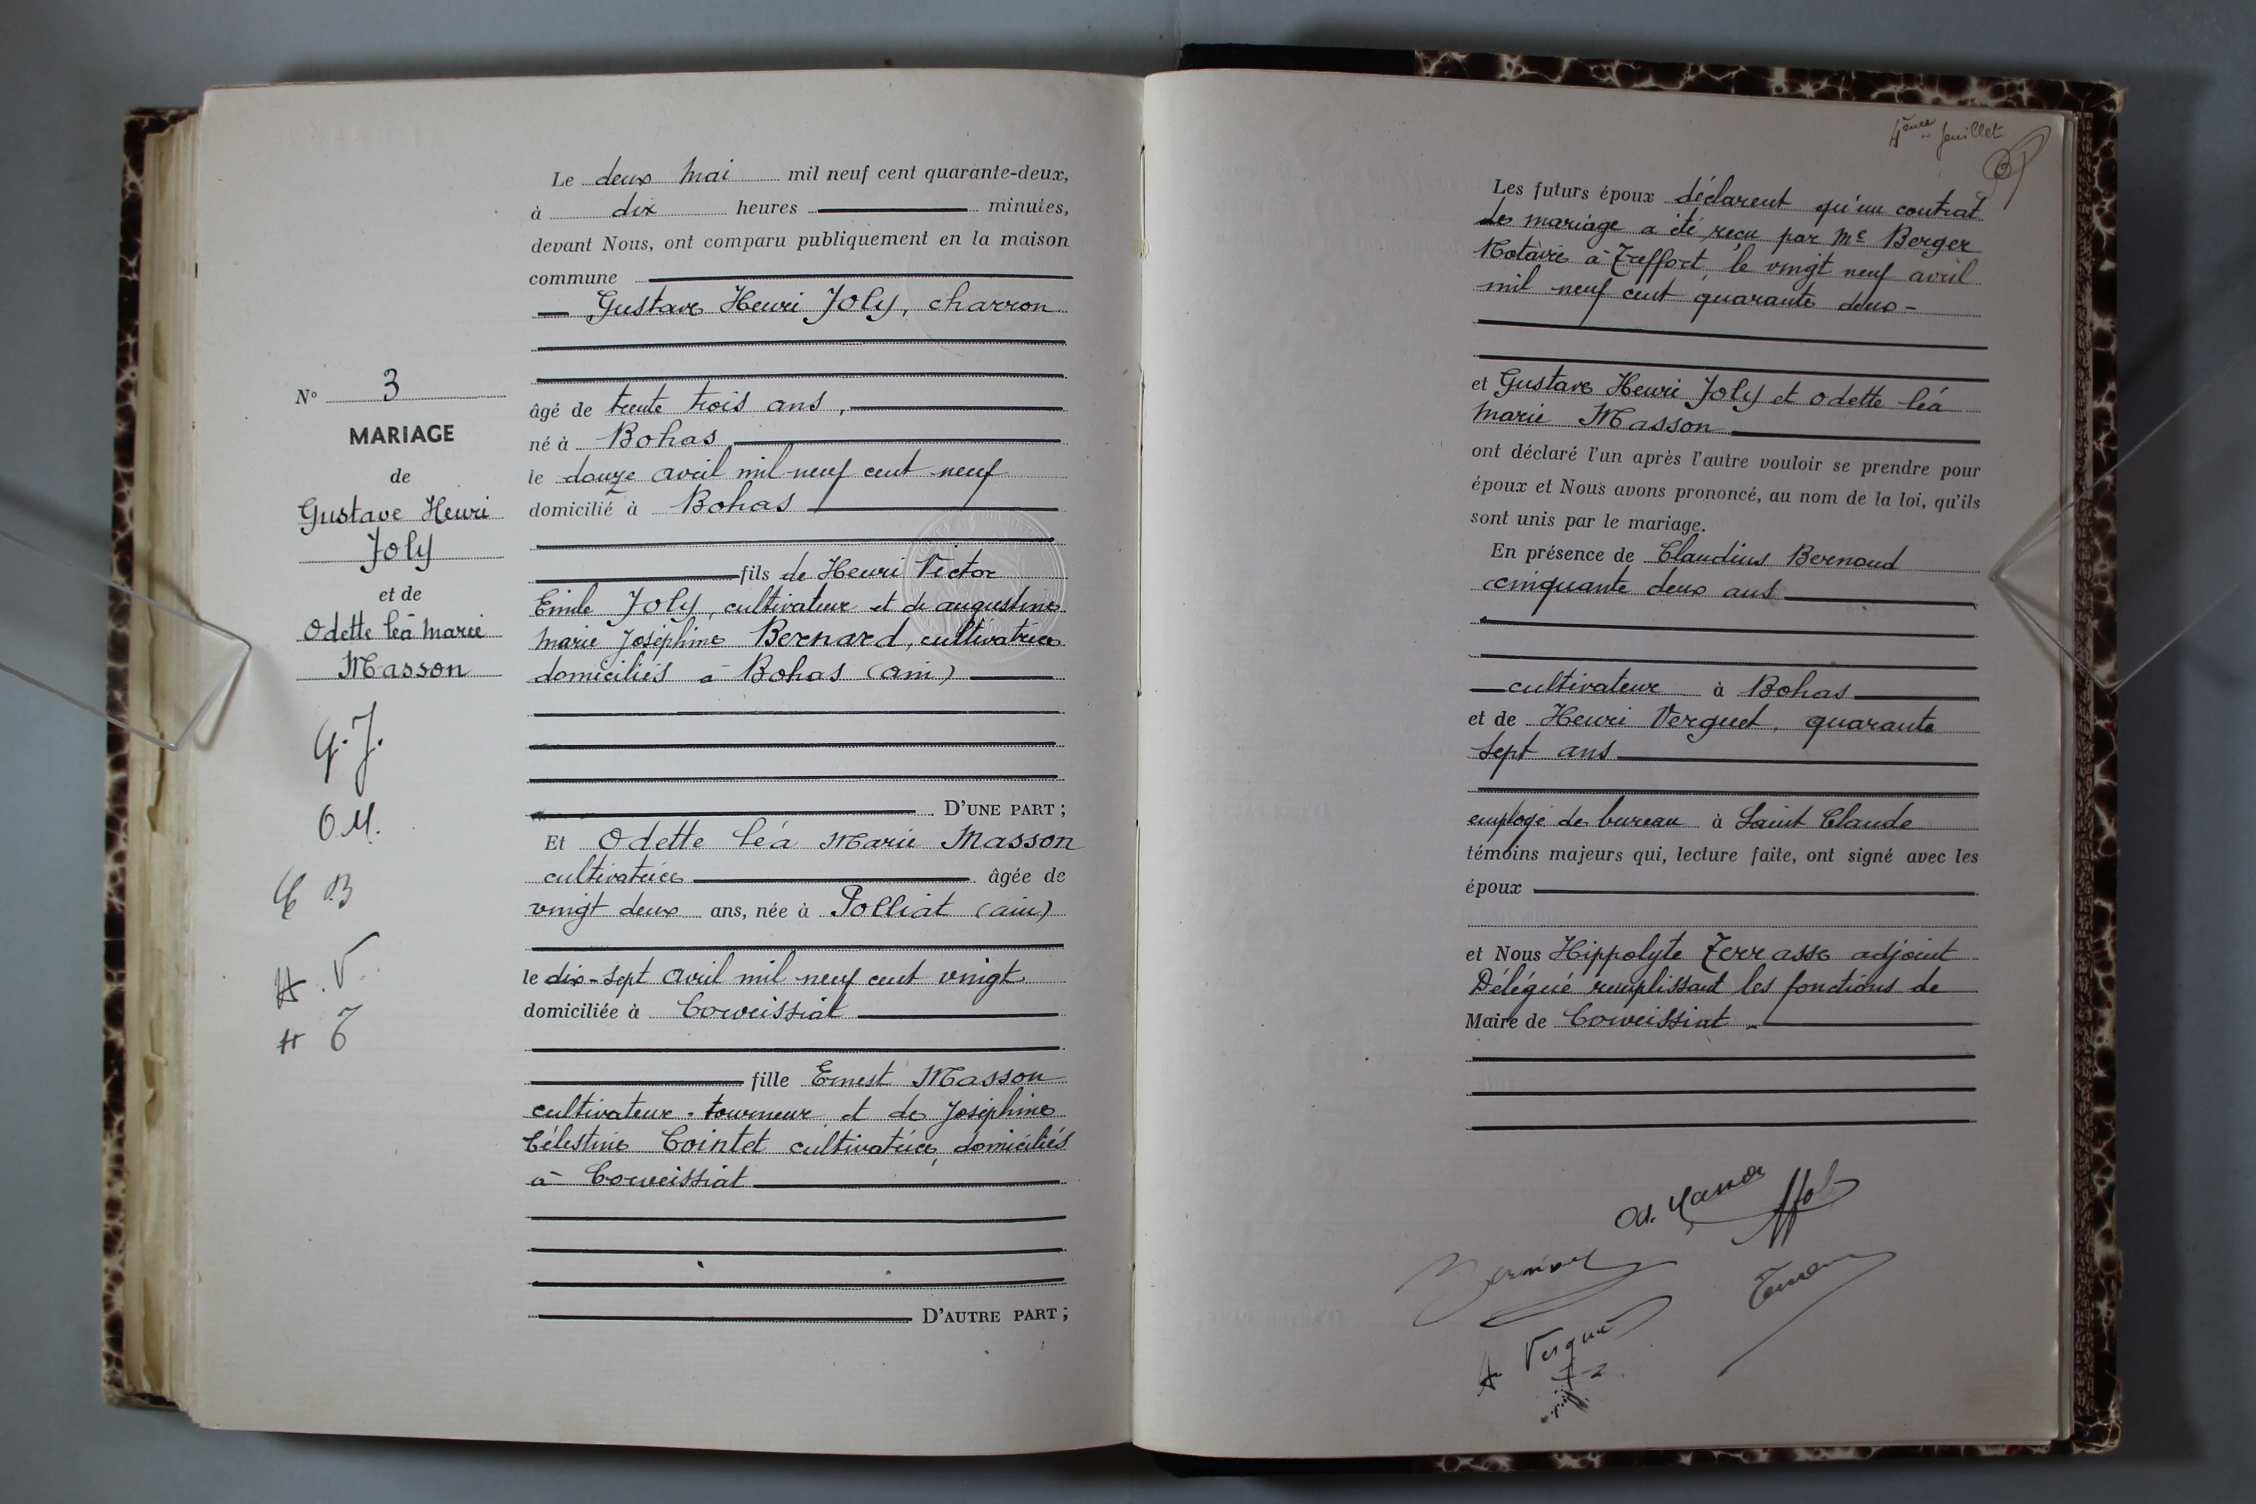 Le deux Mai mil neuf cent quarante-deux,
à dix heures minutes,
devant Nous, ont comparu publiquement en la maison
commune
Gustave Henri Joly, charron
âgé de trente trois ans,
né à Bohas
le douze avril mil neuf cent neuf
domicilié à Bohas
fils de Henri Victor
Emile Joly, cultivateur et de augustine
Marie Joséphine Bernard, cultivatrice
domiciliés à Bohas (ain)
D'UNE PART ;
Et Odette Léa Marie Masson
cultivatrice âgée de
vingt deux ans, née à Polliat (ain)
le dix-sept avril mil neuf cent vingt
domiciliée à Corveissiat
fille Ernest Masson
cultivateur-tourneur et de Joséphine
Célestine Cointet cultivatrice, domiciliés
à Corveissiat
D'AUTRE PART ;
N° 3
MARIAGE
de
Gustave Henri
Joly
et de
Odette Léa Marie
Masson
G. J.
O M.
C B
H. V.
H T
4ème feuillet
Les futurs époux déclarent qu'un contrat
de mariage a été reçu par Me Berger
Notaire à Treffort, le vingt neuf avril
mil neuf cent quarante deux-
et Gustave Henri Joly et Odette Léa
Marie Masson
ont déclaré l'un après l'autre vouloir se prendre pour
époux et Nous avons prononcé, au nom de la loi, qu'ils
sont unis par le mariage.
En présence de Claudius Bernoud
cinquante deux ans
cultivateur à Bohas
et de Henri Verguet, quarante
sept ans
employé de bureau à Saint Claude
témoins majeurs qui, lecture faite, ont signé avec les
époux
et Nous Hippolyte Terrasse adjoint
Délégué remplissant les fonctions de
Maire de Corveissiat
Od. Masson
H Verguet